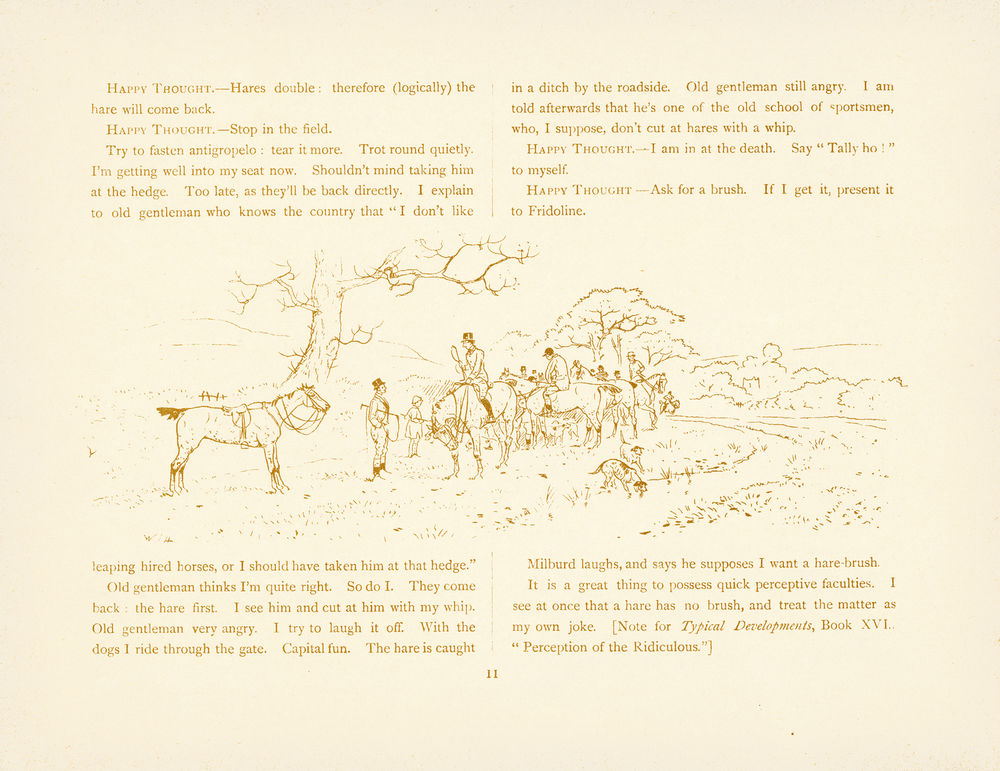 HAPPY THOUGHT.—Hares double: therefore (logically) the
hare will come back.
HAPPY THOUGHT.—Stop in the field.
Try to fasten antigropelo: tear it more. Trot round quietly.
I'm getting well into my seat now. Shouldn't mind taking him
at the hedge. Too late, as they'll be back directly. I explain
to old gentleman who knows the country that "I don't like
leaping hired horses, or I should have taken him at that hedge."
Old gentleman thinks I'm quite right. So do I. They come
back: the hare first. I see him and cut at him with my whip.
Old gentleman very angry. I try to laugh it off. With the
dogs I ride through the gate. Capital fun. The hare is caught
in a ditch by the roadside. Old gentleman still angry. I am
told afterwards that he's one of the old school of sportsmen,
who, I suppose, don't cut at hares with a whip.
HAPPY THOUGHT.—I am in at the death. Say "Tally ho!"
to myself.
HAPPY THOUGHT—Ask for a brush. If I get it, present it
to Fridoline.
Milburd laughs, and says he supposes I want a hare-brush.
It is a great thing to possess quick perceptive faculties. I
see at once that a hare has no brush, and treat the matter as
my own joke. [Note for Typical Developments, Book XVI.,
"Perception of the Ridiculous."]
11